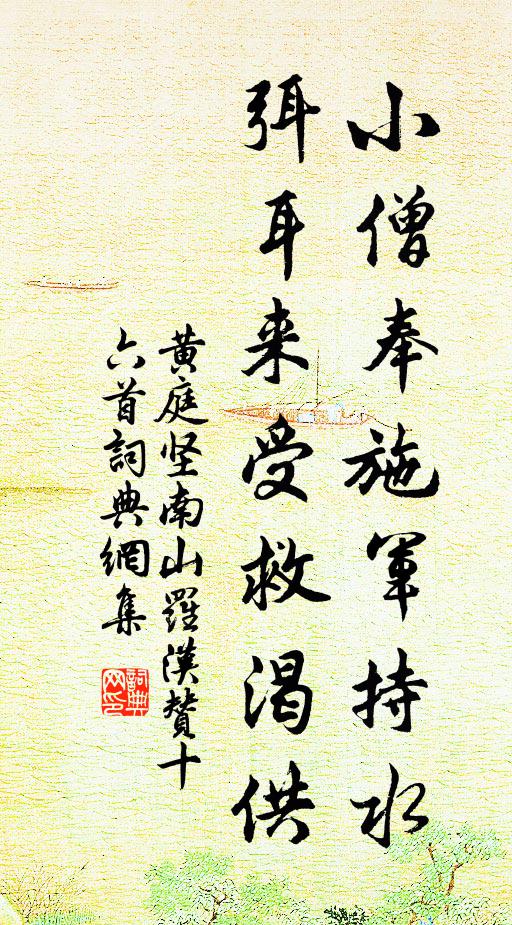 小僧奉施軍持水
弭耳来受救渴供
黄庭坚南山羅漢赞十
六首詞典網集
詞典
网印